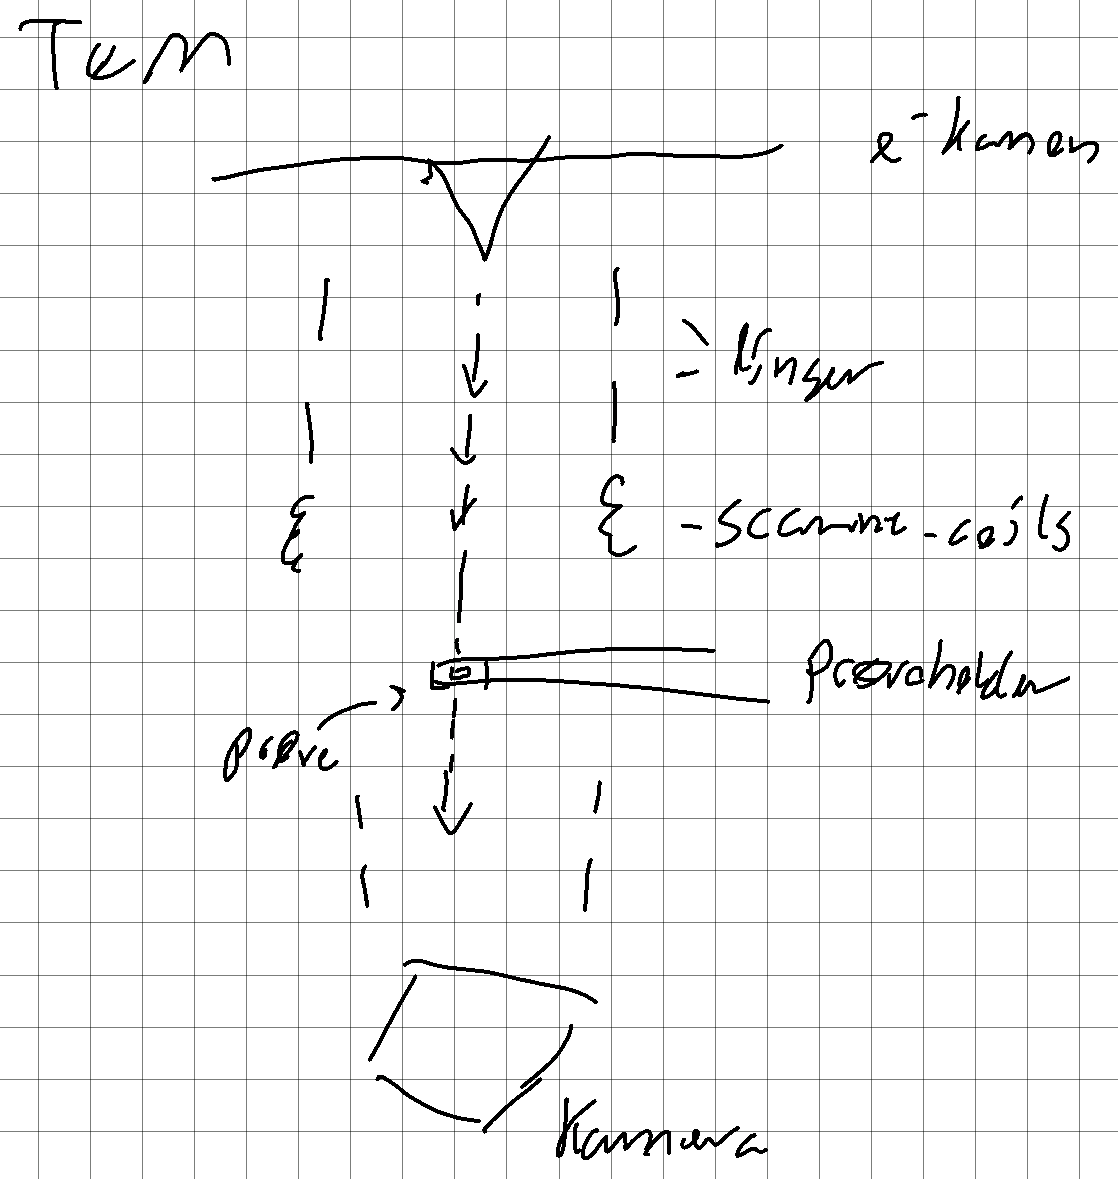 TEM
e⁻ kanon
linser
- Scanning-coils
Prøveholder
prøve
Kamera